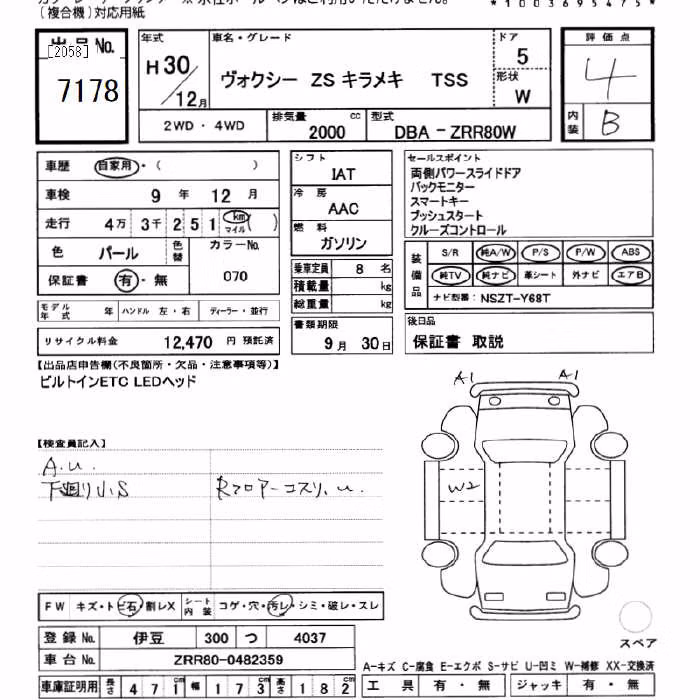 (複合機)対応用紙
*1003695475*
出品No.
[2058]
7178
年式
H30/12月
車名・グレード
ヴォクシー ZS キラメキ TSS
ドア
5
形状
W
評価点
4
内装
B
2WD・4WD
排気量
2000
cc
型式
DBA-ZRR80W
車歴 自家用・( )
車検 9年 12月
走行 4万 3千 2 5 1 km マイル ( )
色 パール
色替
カラーNo.
070
保証書 有・無
モデル年式 年 ハンドル 左・右 ディーラー・並行
リサイクル料金 12,470 円 預託済
シフト
IAT
冷房
AAC
燃料
ガソリン
乗車定員 8 名
積載量 kg
総重量 kg
書類期限
9月 30日
セールスポイント
両側パワースライドドア
バックモニター
スマートキー
プッシュスタート
クルーズコントロール
装備品
S/R 純A/W P/S P/W ABS
純TV 純ナビ 革シート 外ナビ エアB
ナビ型番: NSZT-Y68T
後日品
保証書 取説
【出品店申告欄(不良箇所・欠品・注意事項等)】
ビルトインETC LEDヘッド
【検査員記入】
A.u.
下廻り小S
Rフロアーコスリ、u.
A1
A1
W2
スペア
FW キズ・トビ石・割レX
シート内装 コゲ・穴・汚レ・シミ・破レ・スレ
登録No. 伊豆 300 つ 4037
車台No. ZRR80-0482359
車庫証明用 長さ 471cm 幅 173cm 高さ 182cm
A-キズ C-腐食 E-エクボ S-サビ U-凹ミ W-補修 XX-交換済
工具 有・無 ジャッキ 有・無